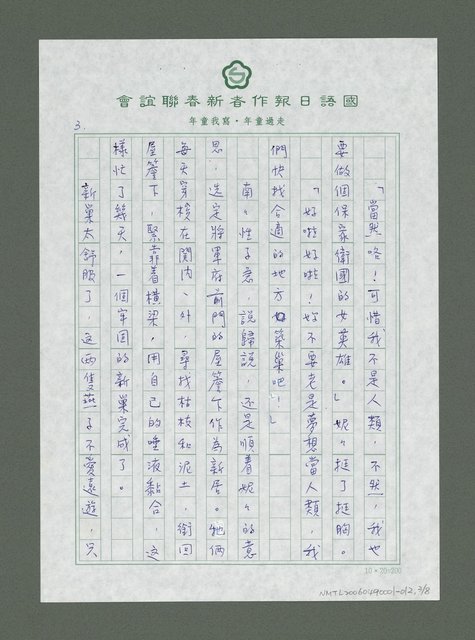 國語日報作者新春聯誼會
走過童年‧寫我童年
3.
「當然咯!可惜我不是人類,不然,我也
要做個保家衛國的女英雄。」妮々挺了挺胸。
「好啦好啦!妳不要老是夢想當人類,我
們快找合適的地方築巢吧!」
南々性子急,說歸說,還是順着妮々的意
思,選定將軍府前門的屋簷下作為新居。牠倆
每天穿梭在閣內、外,尋找枯枝和泥土,銜回
屋簷下,緊靠着橫梁,用自己的唾液黏合,這
樣忙了幾天,一個牢固的新巢完成了。
新巢太舒服了,這兩隻燕子不愛遠遊,只
10×20=200
NMTL20060490001-012,3/8